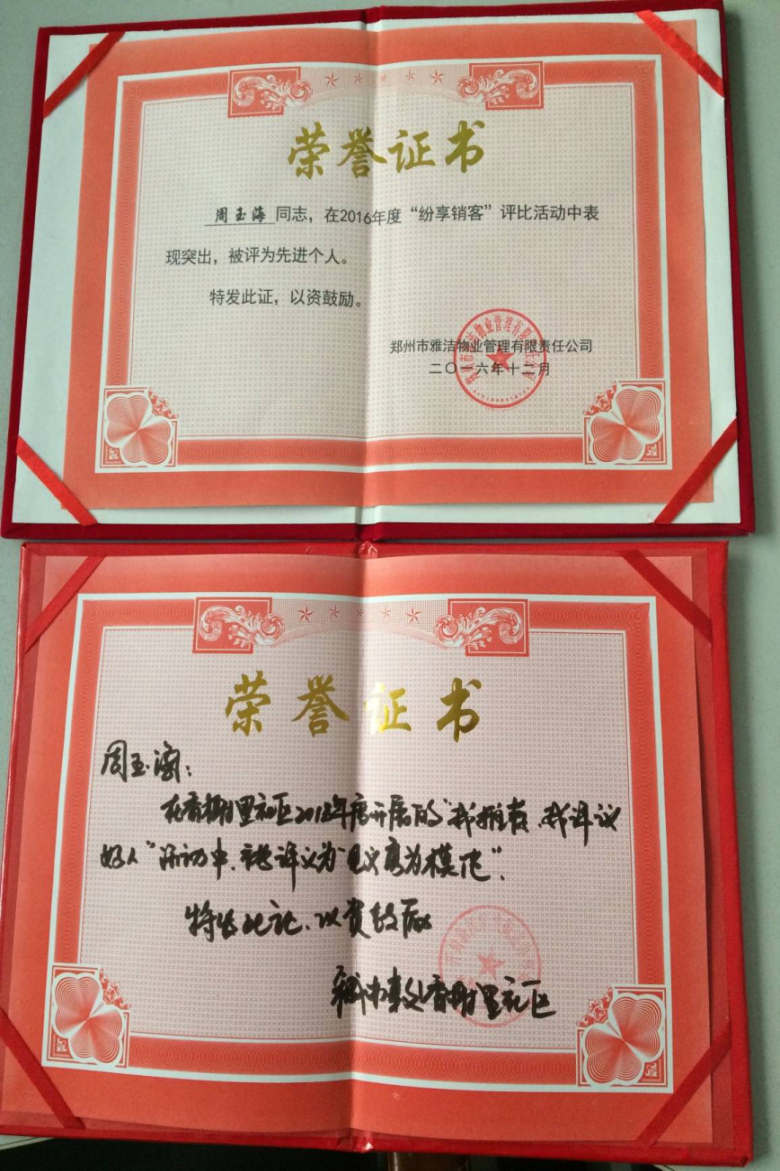 荣誉证书
周玉海同志，在2016年度“纷享销客”评比活动中表
现突出，被评为先进个人。
特发此证，以资鼓励。
郑州市雅洁物业管理有限责任公司
二〇一六年十二月
荣誉证书
周玉海：
在香榭里社区2012年度开展的“我推荐、我评议
好人”活动中，被评议为“见义勇为模范”。
特发此证、以资鼓励
香榭里社区